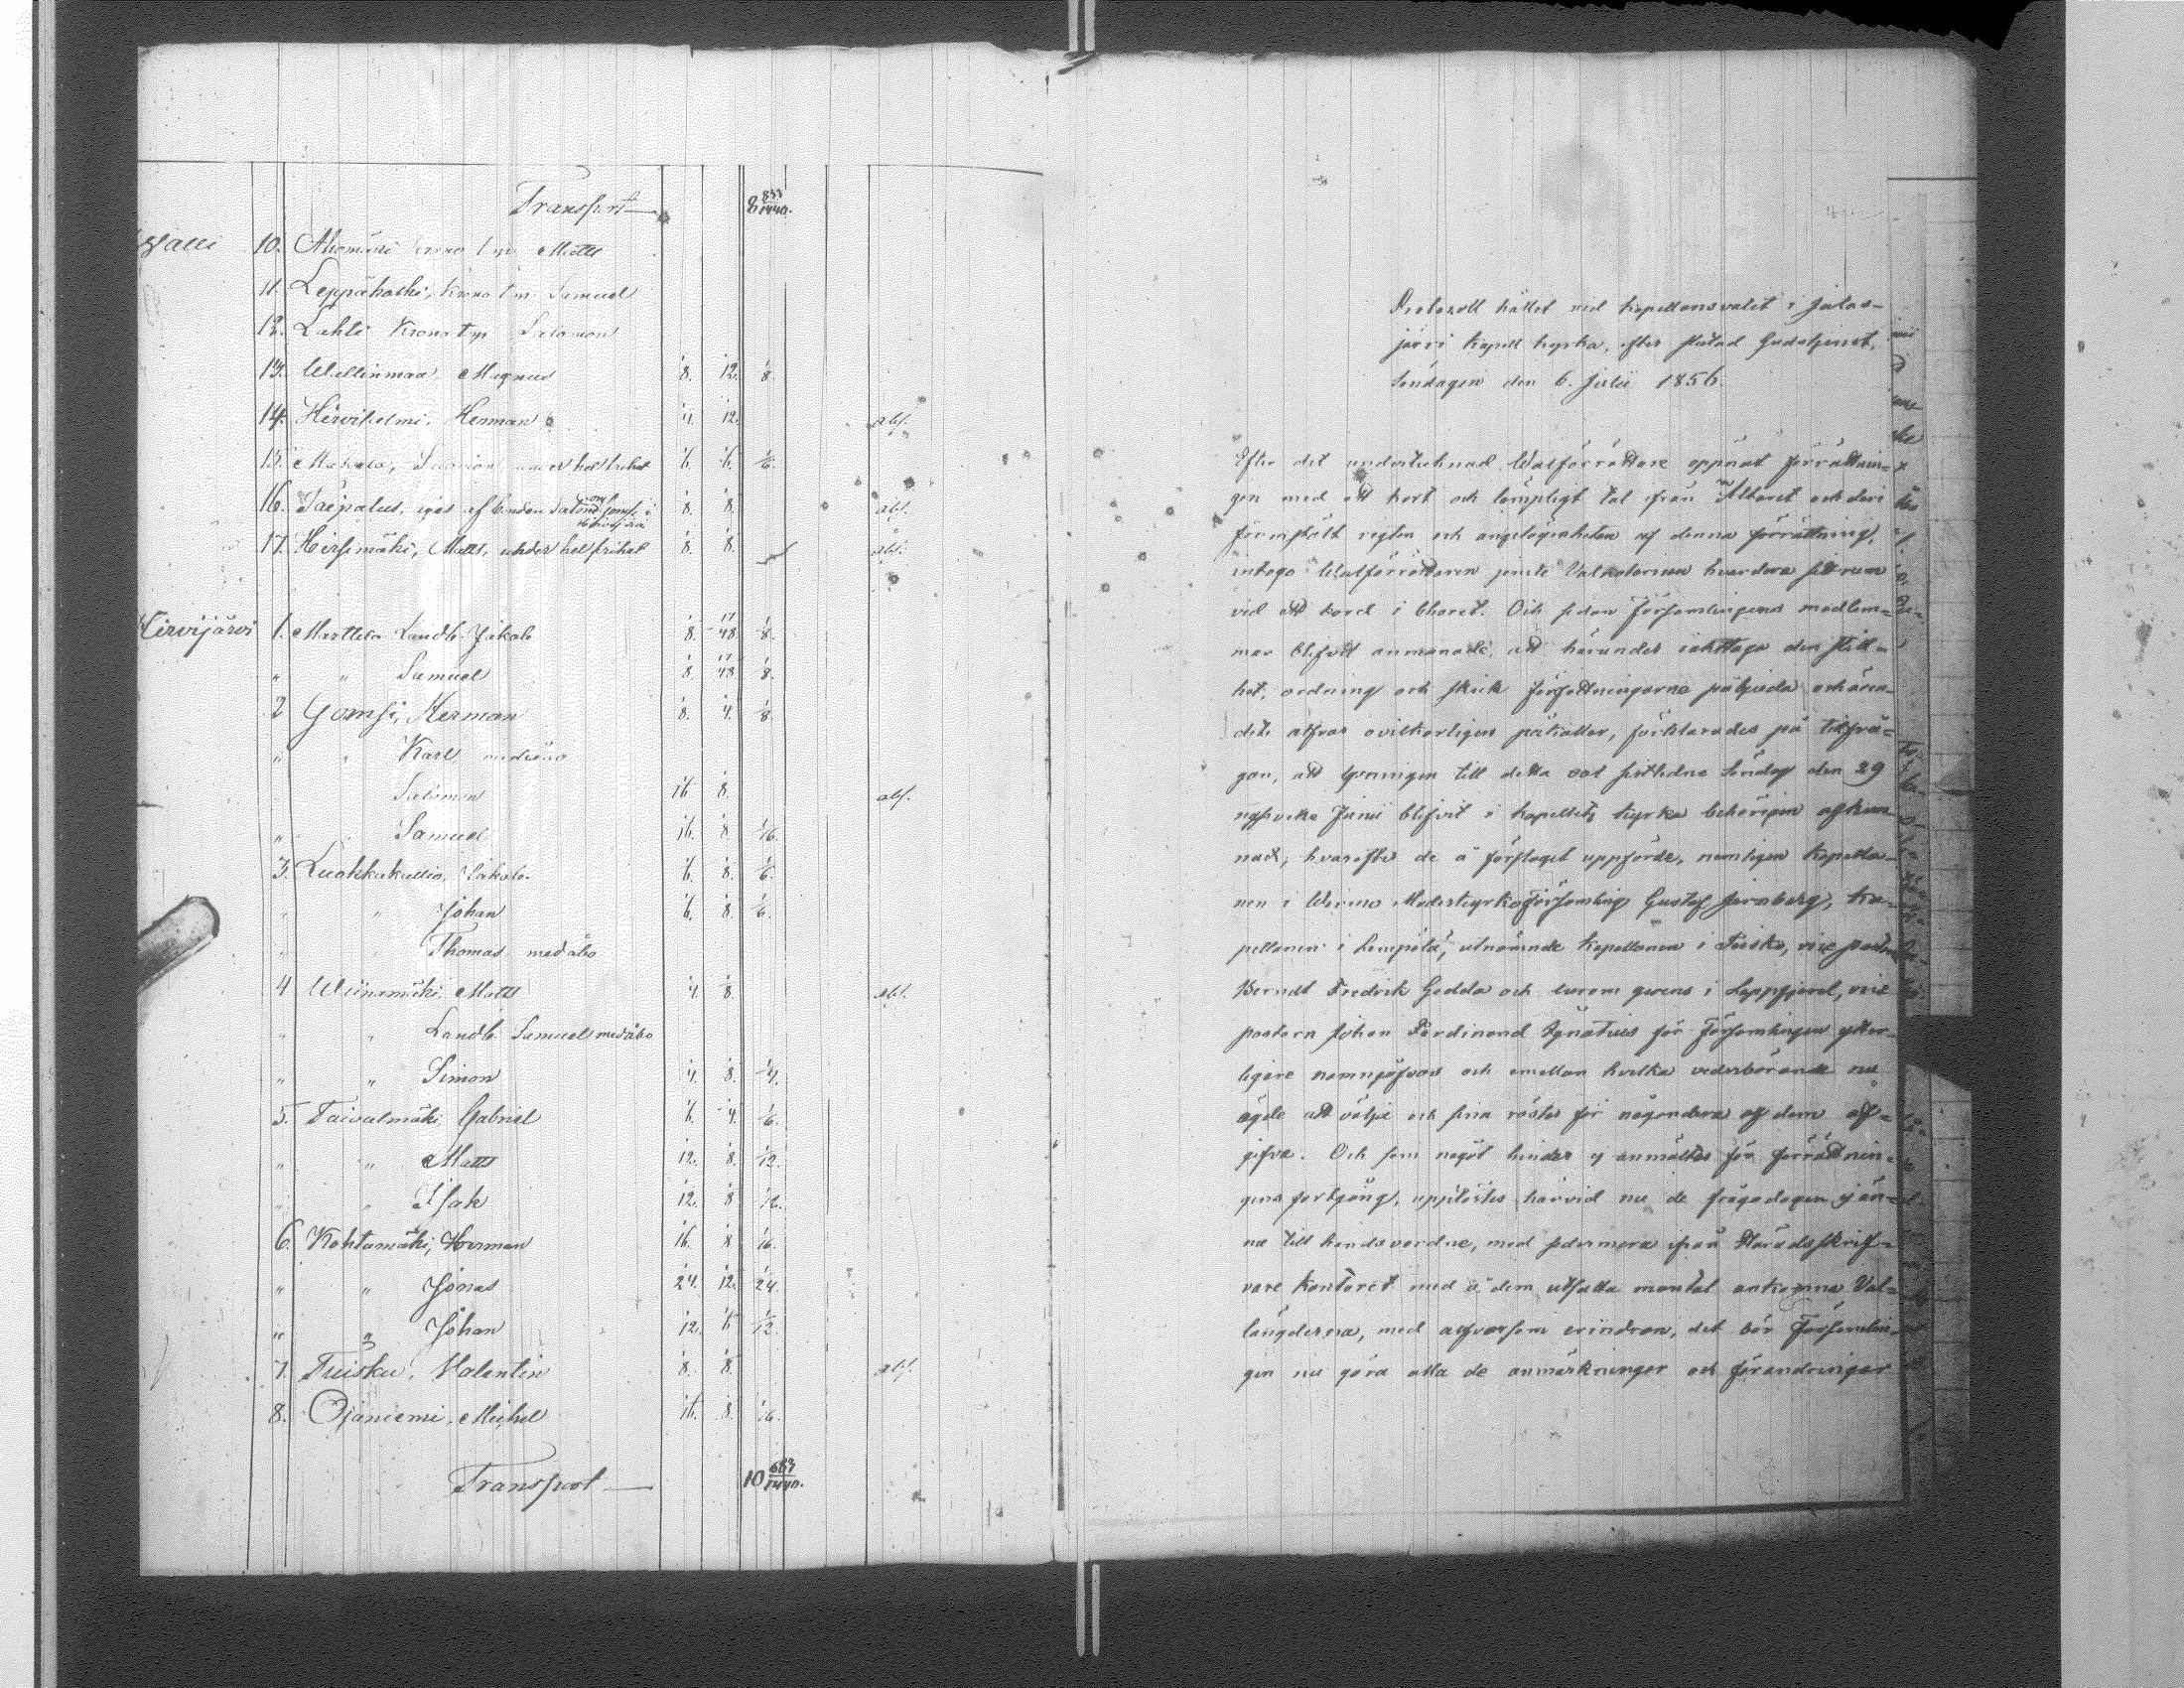 Transport 8 833/1440.
Walli 10. Ahomäki Matts
11. Leppäkoski, Krono t. Samuel
12. Lahti Krono t. Salomon
13. Wallinmaa, Magnus 8. 12. 8.
14. Hirvihelmi, Herman 4. 12. abs.
15. Makela, under hel frihet 6. 6. 6.
16. Saepalus, eges af 8. 8. abs.
17. Hirsimäki, Matts, under hel frihet 8. 8. abs.
Hirvijärvi 1. Marttila Landb. Jakob 8. 17/48. 8.
" " Samuel 8 17/48 8.
2 Gomsi, Herman 8. 4. 8.
" " Karl medåbo
Salomon 16 8. abs.
" " Samuel 16. 8 16.
3. Luohkakallio, Jakob 6. 8. 6.
" " Johan 6. 8. 6.
" " Thomas medåbo
4 Wiinamäki, Matts 4. 8. abs.
" " Landb. Samuel medåbo
" " Simon 4. 8. 4.
5. Taivalmäki Gabriel 6. 4. 6.
" " Matts 12. 8. 12.
" " Isak 12. 8 12.
6. Kohtamäki, Herman 16. 8 16.
" " Jonas 24. 12. 24.
" " Johan 12. 6 12.
7. Tuisku, Valentin 8. 8. abs.
8. Ojaniemi, Michel 16. 8. 16.
Transport 10 683/1440.
Protocoll hållet vid Kapellansvalet i Jalas-
järvi Kapell kyrka, efter slutad Gudstjenst,
Söndagen den 6. Julii 1856.
Efter det undertecknad Valförrättare öppnat förrättnin-
gen med ett kort och lämpligt tal från Altaret och deri
framstält vigten och angelägenheten af denna förrättning,
intogo Valförrättaren jemte Valnotarien hvardera sitt rum
vid ett bord i Choret. Och sedan Församlingens medlem-
mar blifvit anmanade, att härunder iakttaga den still-
het, ordning och skick författningarne påbjuda och ären-
dets alfvar ovilkorligen påkallar, förklarades på tillfrå-
gan, att lysningen till detta val sistledne Söndag den 29
nystvekne Junii blifvit i Kapellets kyrka behörigen afkun-
nad, hvarefter de å förslaget uppförde, nemligen Kapella-
nen i Wirmo Moderkyrkoförsamling Gustaf, Ka-
pellanen i Lempälä, utnämnde Kapellanen i, vice pastorn
Berndt Fredrik Gedda och i Lappfjerd, vice
pastorn Johan Ferdinand Ignatius för Församlingen ytter-
ligare namngåfvos och emellan hvilka vederbörande nu
ägde att välja och sina röster för någondera af dem af-
gifva. Och som något hinder ej anmältes för förrättnin-
gens fortgång, upplästes härvid nu de
na till handa vordne, med sedermera från Häradsskrif-
vare Kontoret med å dem utsatta mantal ankomna Val-
längderna, med alfvarsam erindran, det bör Församlin-
gen nu göra alla de anmärkningar och förändringar